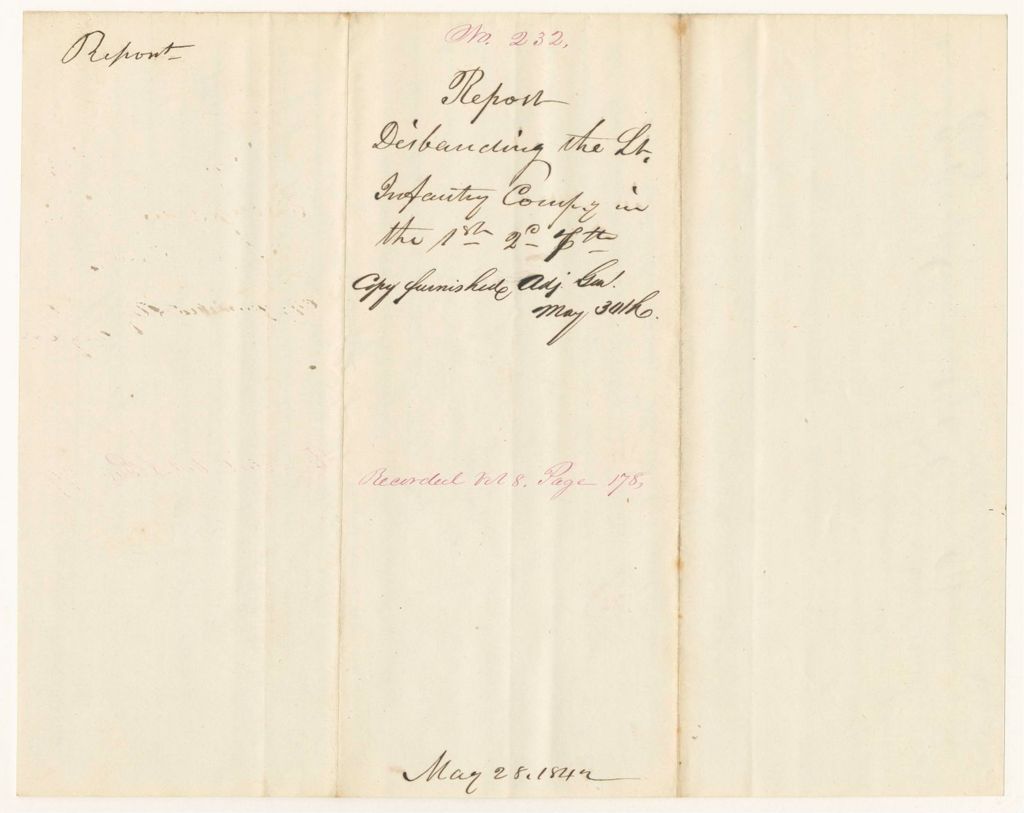 Report
No. 232.
Report
Disbanding the Lt.
Infantry Compy in
the 1st 2d & 7th
Copy furnished Adj. Genl.
May 30th.
Recorded Vol 8. Page 178.
May 28. 1842